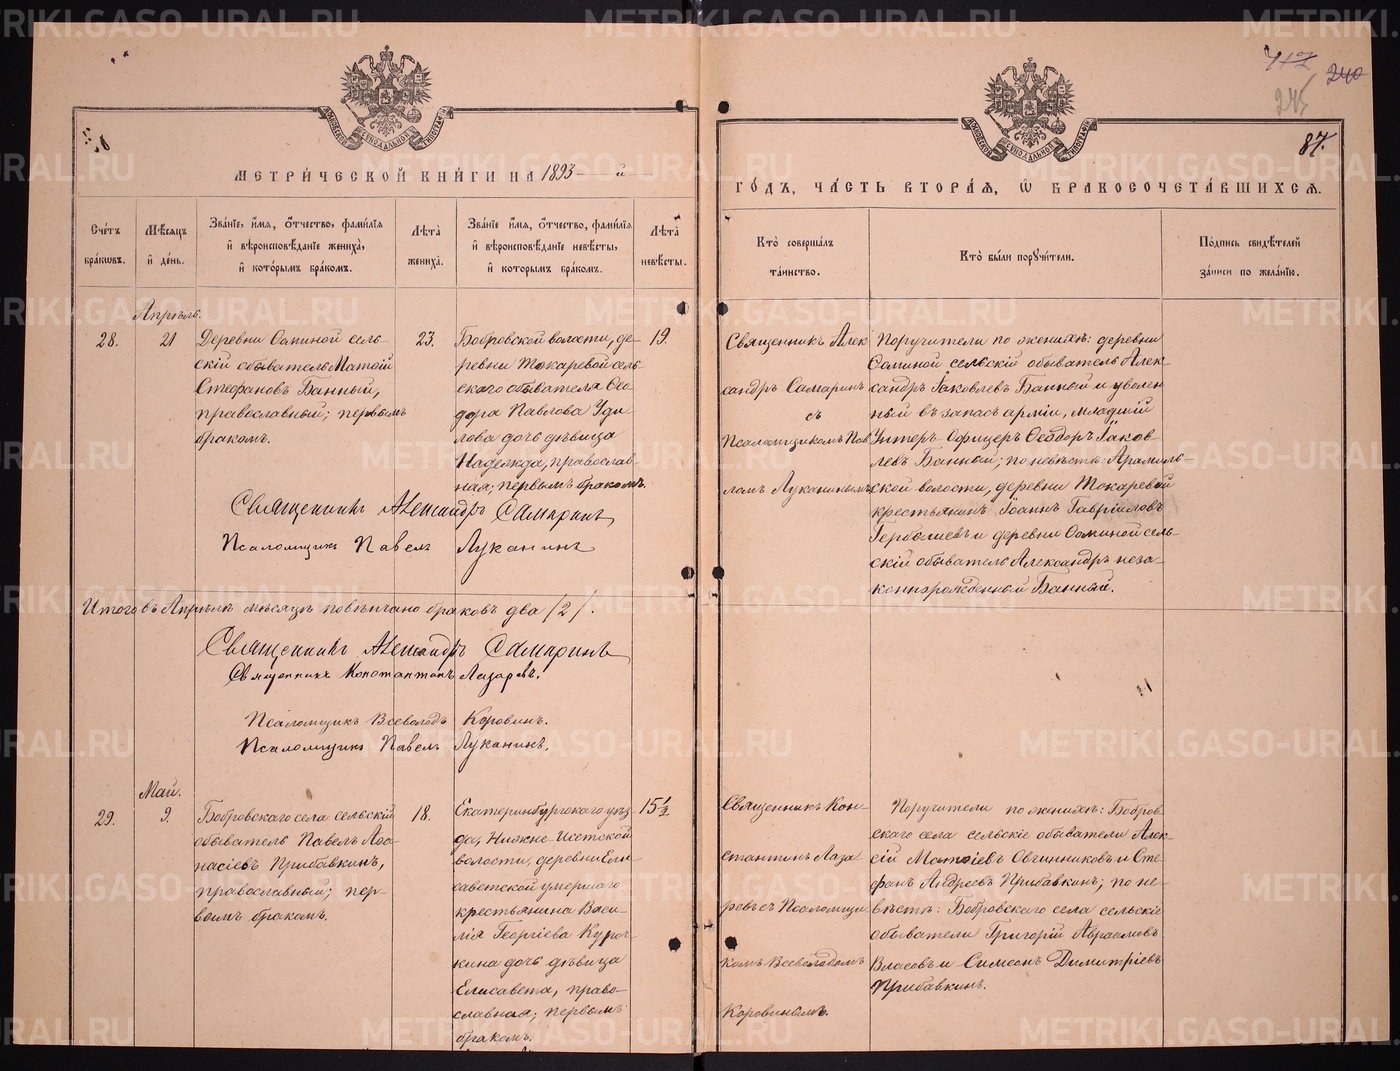 METRIKI.GASO-URAL.RU
417
240
245
87.
МЕТРИ́ЧЕСКОЙ КНИ́ГИ НА 1893-й
ГО́ДЪ, ЧА́СТЬ ВТОРА́Я, Ѡ БРАКОСОЧЕТА́ВШИХСЯ.
Сче́тъ бра́кѡвъ.
Мѣ́сяцъ и҆ де́нь.
Зва́нїе, и҆́мя, ѻ҆́тчество, фами́лїя и҆ вѣроисповѣ́данїе жениха̀, и҆ кото́рымъ бра́комъ.
Лѣ́та жениха̀.
Зва́нїе и҆́мя, ѻ҆́тчество, фами́лїя и҆ вѣроисповѣ́данїе невѣ́сты, и҆ кото́рымъ бра́комъ.
Лѣ́та невѣ́сты.
Кто̀ соверша́лъ та́инство.
Кто̀ бы́ли порꙋчи́тели.
По́дпись свидѣ́телей за́писи по жела́нїю.
Апрѣль.
28.
21
Деревни Фоминой сель-
скій обыватель Матѳій
Стефановъ Банный,
православный; первымъ
бракомъ.
23.
Бобровской волости, де-
ревни Токаревой сель-
скаго обывателя Ѳео
дора Павлова Уди-
лова дочь дѣвица
Надежда, православ-
ная; первымъ бракомъ.
19.
Священникъ Алек
сандръ Самаринъ
съ
Псаломщикомъ Пав
ломъ Луканинымъ
Поручители по женихѣ: деревни
Фоминой сельскій обыватель Алек-
сандръ Іаковлевъ Банный и уволен
ный въ запасъ арміи, младшій
Унтеръ Офицеръ Ѳеодоръ Іаков
левъ Банный; по невѣстѣ: Арамиль-
ской волости, деревни Токаревой
крестьянинъ Іоаннъ Гавріиловъ
и деревни Фоминой сель-
скій обыватель Александръ неза-
коннорожденный Банный.
Священникъ Александръ Самаринъ
Псаломщикъ Павелъ Луканинъ
Итого въ Апрѣлѣ мѣсяцѣ повѣнчано браковъ два /2/.
Священникъ Александръ Самаринъ
Священникъ Константинъ Лазаревъ.
Псаломщикъ Всеволодъ Коровинъ.
Псаломщикъ Павелъ Луканинъ.
Май.
29.
9.
Бобровскаго села сельскій
обыватель Павелъ Аѳа
насіевъ Прибавкинъ,
православный; пер-
вымъ бракомъ.
18.
Екатеринбургскаго уѣз
да, Нижне-Исетской
волости, деревни Ели
саветской умершаго
крестьянина Васи-
лія Георгіева Куроч
кина дочь дѣвица
Елисавета, право-
славная; первымъ
бракомъ.
15½
Священникъ Кон-
стантинъ Лаза
ревъ съ Псаломщи
комъ Всеволодомъ
Коровинымъ.
Поручители по женихѣ: Бобров-
скаго села сельскіе обыватели Алек-
сій Матѳіевъ Овчинниковъ и Сте-
фанъ Андреевъ Прибавкинъ; по не-
вѣстѣ: Бобровскаго села сельскіе
обыватели Григорій Авраамовъ
Власовъ и Симеонъ Димитріевъ
Прибавкинъ.